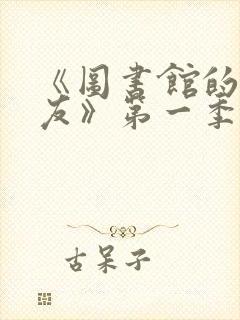 《圖書館的
友》第一季
古呆子